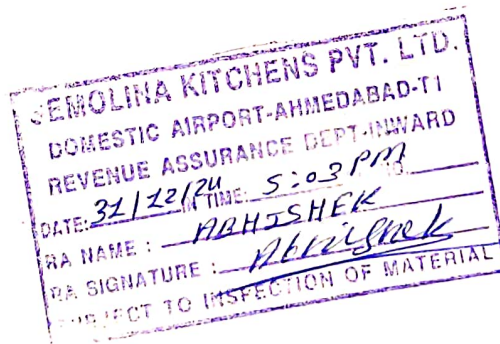 SEMOLINA KITCHENS PVT. LTD.
DOMESTIC AIRPORT-AHMEDABAD-T1
REVENUE ASSURANCE DEPT-INWARD
DATE: 31/12/24 IN TIME: 5:03 PM
RA NAME : ABHISHEK
RA SIGNATURE : Abhishek
SUBJECT TO INSPECTION OF MATERIAL